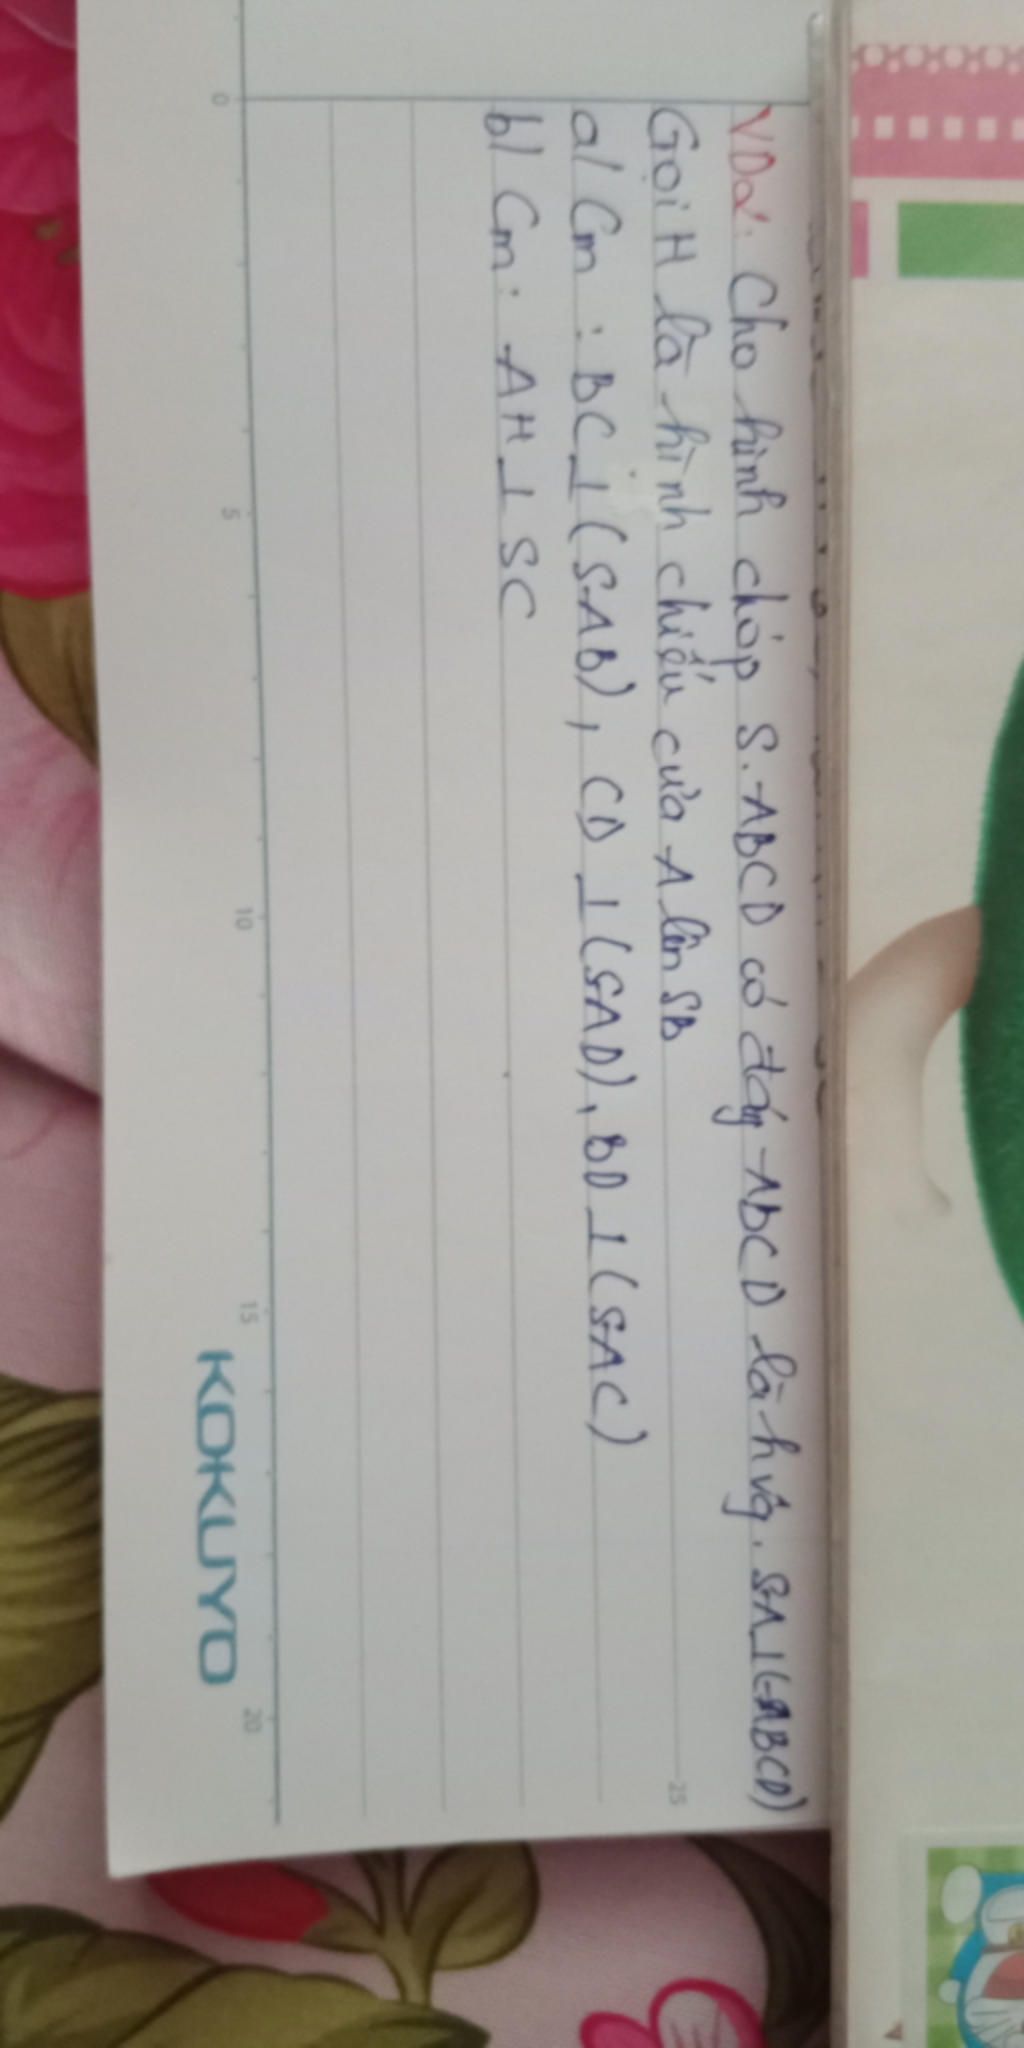 VD2. Cho hình chóp S.ABCD có đáy ABCD là hvg. SA⊥(ABCD)
Gọi H là hình chiếu của A lên SB
a/ Cm : BC ⊥ (SAB), CD ⊥ (SAD), BD ⊥ (SAC)
b/ Cm : AH ⊥ SC
25
0 5 10 15 20
KOKUYO